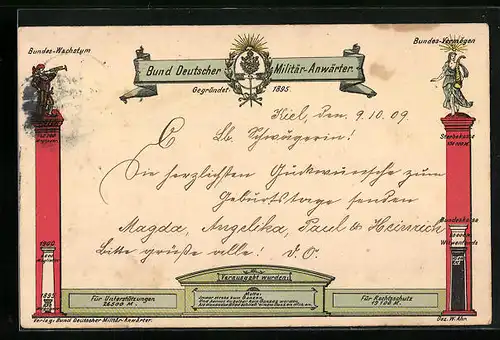 Bundes-Wachstum
Bundes-Vermögen
Bund Deutscher Militär-Anwärter.
Gegründet 1895.
Kiel, den. 9.10.09.
Lb. Schwägerin!
Die herzlichsten Glückwünsche zum
Geburtstage senden
Magda, Angelika, Paul & Heinrich
Bitte grüße alle! D.O.
Sterbekasse
Bundeskasse
Witwenfonds
1900.
1895.
Verausgabt wurden:
Für Unterstützungen
26500 M.
Motto:
Immer strebe zum Ganzen,
Für Rechtsschutz
15100 M.
Verlag: Bund Deutscher Militär-Anwärter.
Gez. W. Ahn